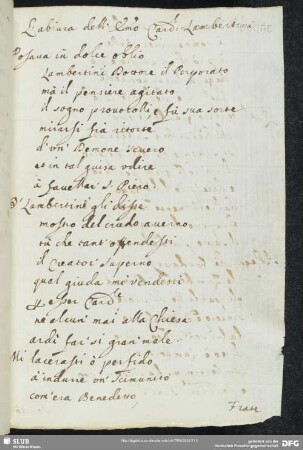 L'abiura dell' Emo Card.l Lambertini
Posava in dolce oblio
Lambertini Bovone il Porporato
mà il pensiere agitato
il sogno provocolli, e fù sua sorte
mirarsi frà ritorte
d'un' Demone severo
et in tal guisa udire
à favellar S. Piero
O' Lambertini gli disse
mostro del crudo averno
tù che tant' offendesti
il Creator superno
qual giuda mi vendesti
p esser Card.le
ne alcun' mai alla Chiesa
ardì far sì gran' male
Mi lacerasti ò perfido
à indurre un' Scimunito
com'era Benedetto,
Frate
SLUB
Wir führen Wissen.
gefördert von der
Deutschen Forschungsgemeinschaft
DFG